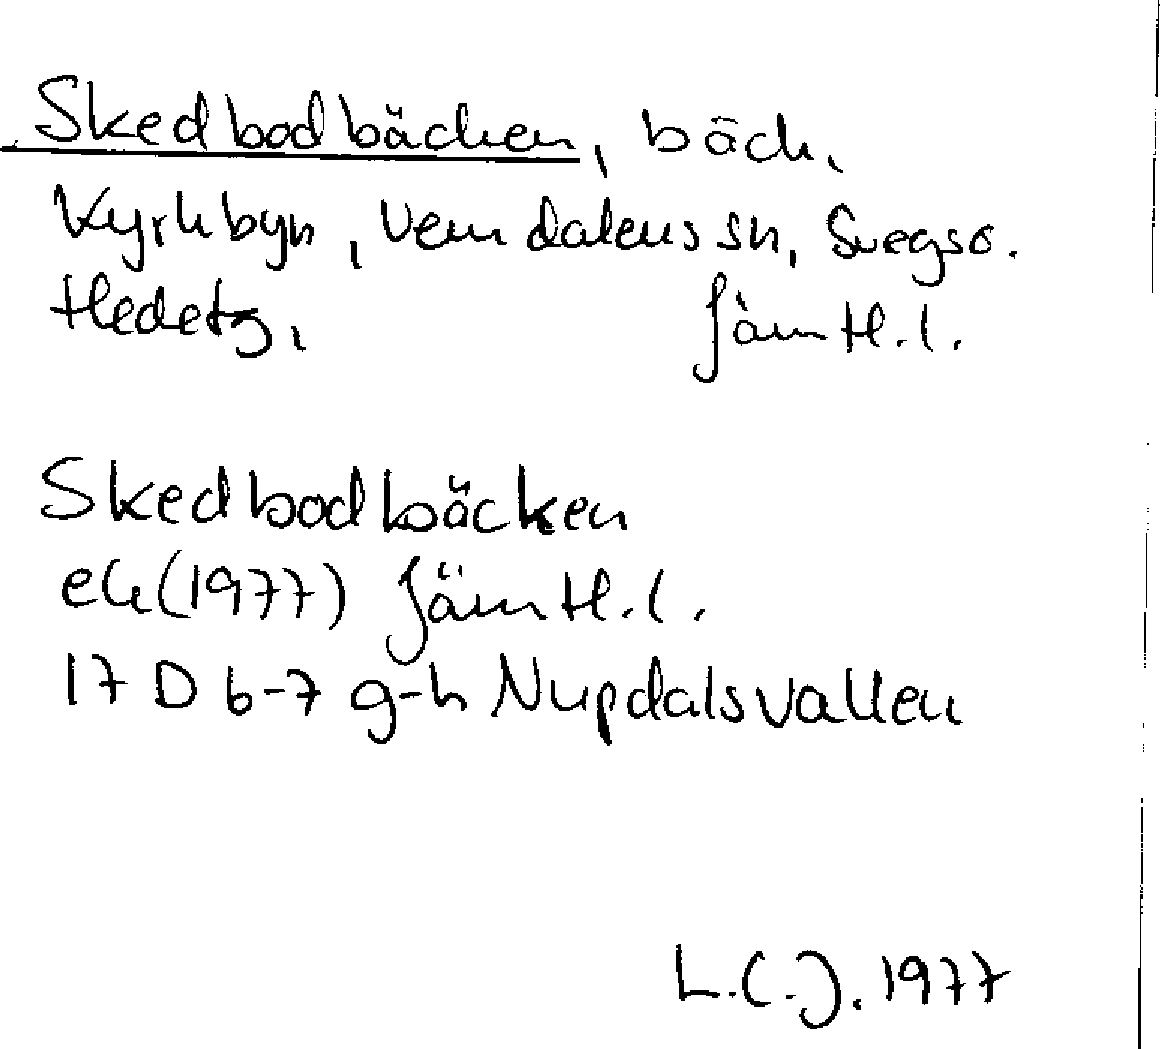 Skedbodbäcken, bäck,
Kyrkbyn, Vemdalens sn, Svegs o.
Hede tg, Jämtl. l.
Skedbodbäcken
ek (1977) Jämtl. l.
17 D 6-7 g-h Nupdalsvallen
L.C.J. 1977